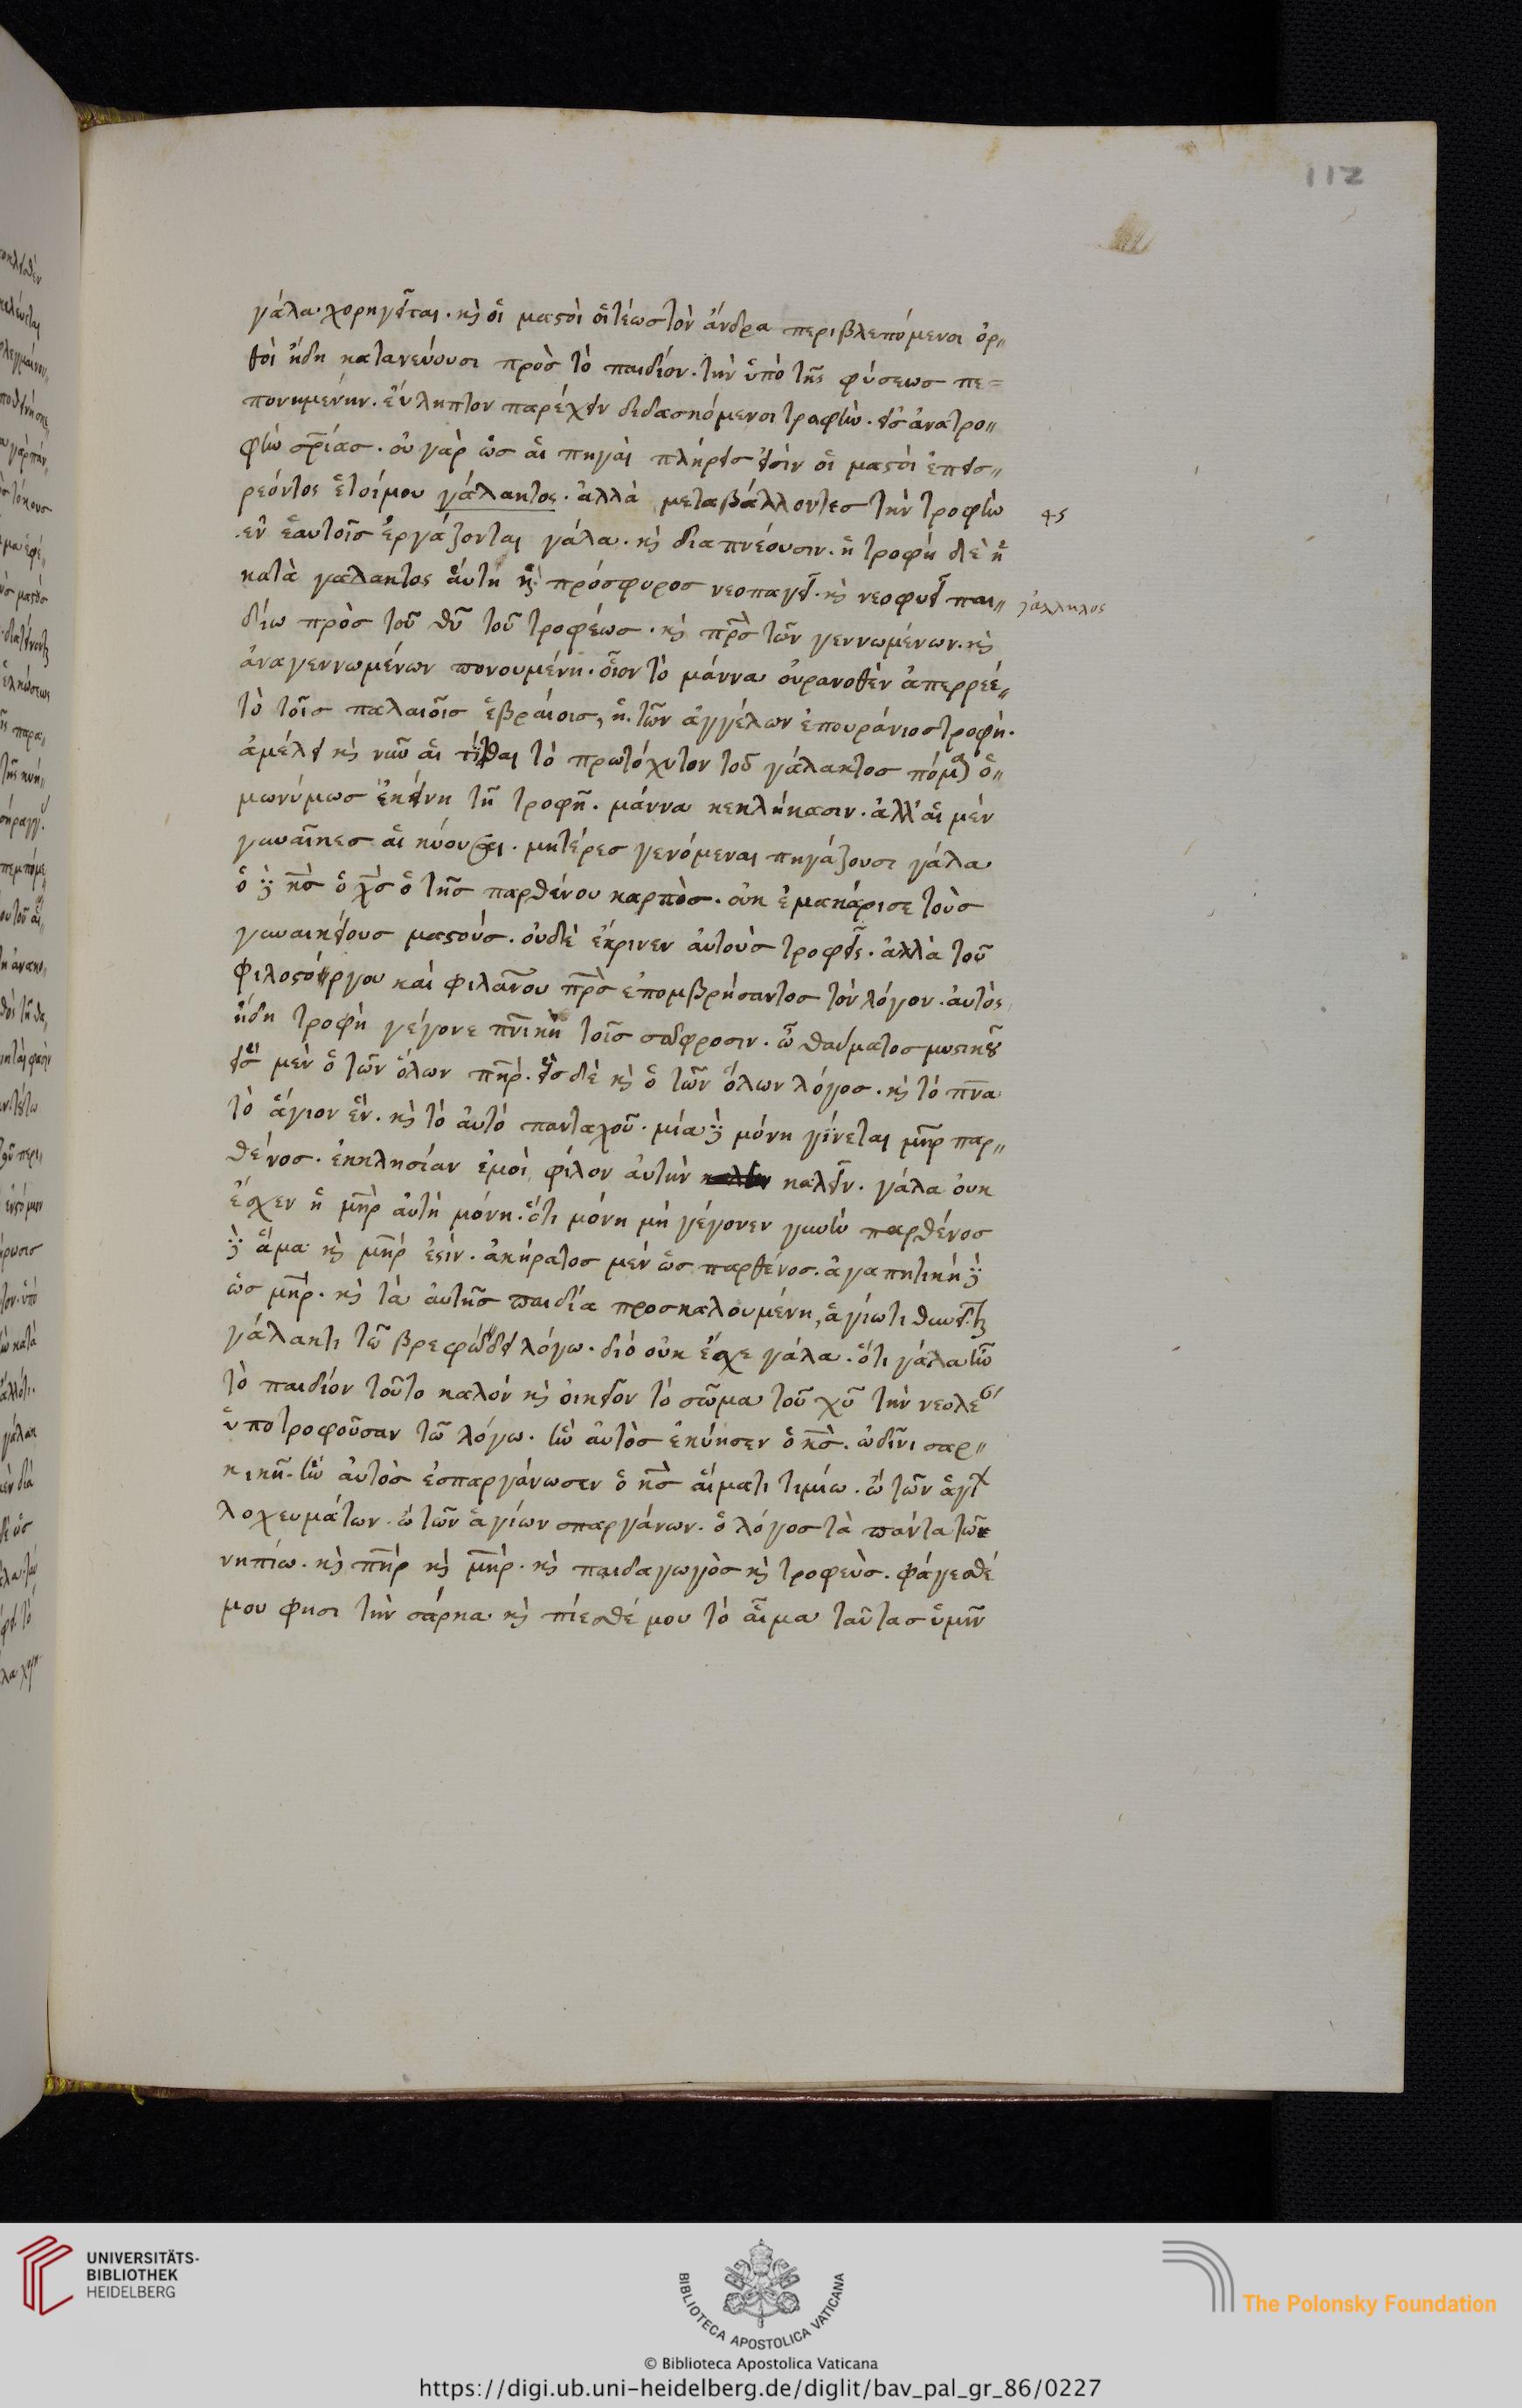 112
γάλα χορηγεῖται. κὶ οἱ μαϛοὶ οἱ τέως τὸν ἄνδρα περιβλεπόμενοι ὀρ〃
θοὶ ἤδη κατανεύουσι πρὸς τὸ παιδίον. τὴν ὑπὸ τῆς φύσεως πε=
πονημένην. εὔληπτον παρέχειν διδασκόμενοι τροφὴν. εἰς ἀνατρο〃
φὴν σρίας. οὐ γὰρ ὡς αἱ πηγαὶ πλήρεις εἰσὶν οἱ μαϛοὶ ἐπεισ〃
ρεόντος ἑτοίμου γάλακτος. ἀλλὰ μεταβάλλοντες τὴν τροφὴν
45
ἐν ἑαυτοῖς ἐργάζονται γάλα. κὶ διαπνέουσιν. ἡ τροφὴ δὲ ἡ
κατὰ γάλακτος αὕτη πρόσφορος νεοπαγεῖ. κὶ νεοφυεῖ παι〃
γάλληλος
δίω πρὸς τοῦ θῦ τοῦ τροφέως. κὶ πρ̅ς τῶν γεννωμένων. κὶ
ἀναγεννωμένων πονουμένη. οἷον τὸ μάννα οὐρανοθὲν ἀπερρεέ〃
το τοῖς παλαιοῖς ἑβραίοις, ἡ τῶν ἀγγέλων ἐπουράνιος τροφή.
ἀμέλει κὶ νῦν αἱ τίτθαι τὸ πρωτόχυτον τοῦ γάλακτος πόμα ὁ〃
μωνύμως ἐκείνη τῇ τροφῇ. μάννα κεκλήκασιν. ἀλλ' αἱ μὲν
γυναῖκες αἱ κύουσαι. μητέρες γενόμεναι πηγάζουσι γάλα
ὁ δὲ κ̅ς ὁ χ̅ς ὁ τῆς παρθένου καρπὸς. οὐκ ἐμακάρισε τοὺς
γυναικείους μαϛούς. οὐδὲ ἔκρινεν αὐτοὺς τροφεῖς. ἀλλὰ τοῦ
φιλοϛόργου καὶ φιλα̅νου πρ̅ς ἐπομβρήσαντος τὸν λόγον. αὐτὸς
ἤδη τροφὴ γέγονε πν̅ικὴ τοῖς σώφροσιν. ὢ θαύματος μυϛικοῦ
εἷς μὲν ὁ τῶν ὅλων π̅ηρ. εἷς δὲ κὶ ὁ τῶν ὅλων λόγος. κὶ τὸ πν̅α
τὸ ἅγιον ἓν. κὶ τὸ αὐτὸ πανταχοῦ. μία δὲ μόνη γίνεται μ̅ηρ παρ〃
θένος. ἐκκλησίαν ἐμοὶ φίλον αὐτὴν καλεῖν καλεῖν. γάλα οὐκ
ἔσχεν ἡ μ̅ηρ αὕτη μόνη. ὅτι μόνη μὴ γέγονεν γυνὴ παρθένος
δὲ ἅμα κὶ μ̅ηρ ἐϛίν. ἀκήρατος μὲν ὡς παρθένος. ἀγαπητικὴ δὲ
ὡς μ̅ηρ. κὶ τὰ αὐτῆς παιδία προσκαλουμένη, ἁγίωτι θηνεῖται
γάλακτι τῷ βρεφώδει λόγω. διὸ οὐκ ἔσχε γάλα. ὅτι γάλα ἦν
τὸ παιδίον τοῦτο καλὸν κὶ οἰκεῖον τὸ σῶμα τοῦ χῦ τὴν νεολαί
ὑποτροφοῦσαν τῷ λόγω. ἣν αὐτὸς ἐκύησεν ὁ κ̅ς. ὠδῖνι σαρ〃
κικῇ. ἣν αὐτὸς ἐσπαργάνωσεν ὁ κ̅ς αἵματι τιμίω. ὢ τῶν ἁγί
λοχευμάτων. ὢ τῶν ἁγίων σπαργάνων. ὁ λόγος τὰ πάντα τῷ
νηπίω. κὶ π̅ηρ κὶ μ̅ηρ. κὶ παιδαγωγὸς κὶ τροφεὺς. φάγεσθέ
μου φησι τὴν σάρκα κὶ πίεσθέ μου τὸ αἷμα ταύτας ὑμῖν
UNIVERSITÄTS-
BIBLIOTHEK
HEIDELBERG
BIBLIOTECA APOSTOLICA VATICANA
The Polonsky Foundation
© Biblioteca Apostolica Vaticana
https://digi.ub.uni-heidelberg.de/diglit/bav_pal_gr_86/0227